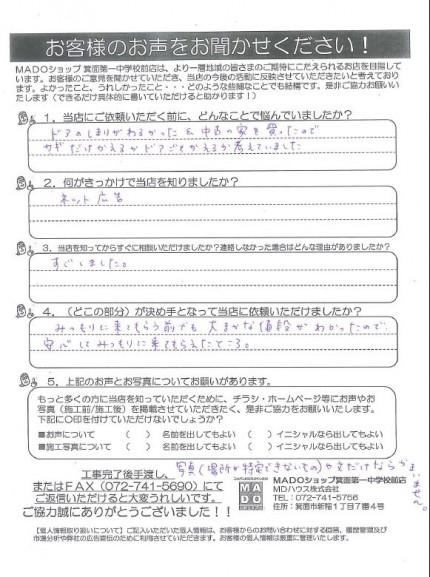 お客様のお声をお聞かせください！
MADOショップ 箕面第一中学校前店は、より一層地域の皆さまのご期待にこたえられるお店を目指しています。お客様のご意見を聞かせていただき、当店の今後の活動に反映させていただきたいと考えております。よかったこと、うれしかったこと・・・どのような些細なことでも結構です。是非ご協力お願いいたします（できるだけ具体的に書いていただけると助かります！）
1．当店にご依頼いただく前に、どんなことで悩んでいましたか？
ドアのしまりがわるかった & 中古の家を買ったので
カギだけかえるかドアごとかえるか考えていました
2．何がきっかけで当店を知りましたか？
ネット広告
3．当店を知ってからすぐに相談いただけましたか？連絡しなかった場合はどんな理由がありましたか？
すぐしました。
4．（どこの部分）が決め手となって当店に依頼いただけましたか？
みつもりに来てもらう前でも 大まかな値段がわかったので、
安心してみつもりに来てもらえたところ。
5．上記のお声とお写真についてお願いがあります。
もっと多くの方に当店を知っていただくために、チラシ・ホームページ等にお声やお
写真（施工前/施工後）を掲載させていただきたく、是非ご協力をお願いいたします。
下記に〇印を付けていただけないでしょうか？
■お声について （ ） 名前を出してもよい （ ）イニシャルなら出してもよい
■施工写真について （ ） 名前を出してもよい （ ）イニシャルなら出してもよい
写真（場所が特定できないもの）や文だけならかまいません。
工事完了後手渡し、
またはFAX（072-741-5690）にて
ご返信いただけると大変うれしいです。
ご協力誠にありがとうございました！！
MADO
MADOショップ箕面第一中学校前店
MDハウス株式会社
TEL：072-741-5756
住所：箕面市新稲1丁目7番4号
【個人情報取り扱いについて】ご記入いただいた個人情報は、お客様からのお問い合わせに対する回答、履歴管理及び
市場分析や弊社の広告宣伝のために利用させていただきます。お客様の個人情報は厳重に管理いたします。